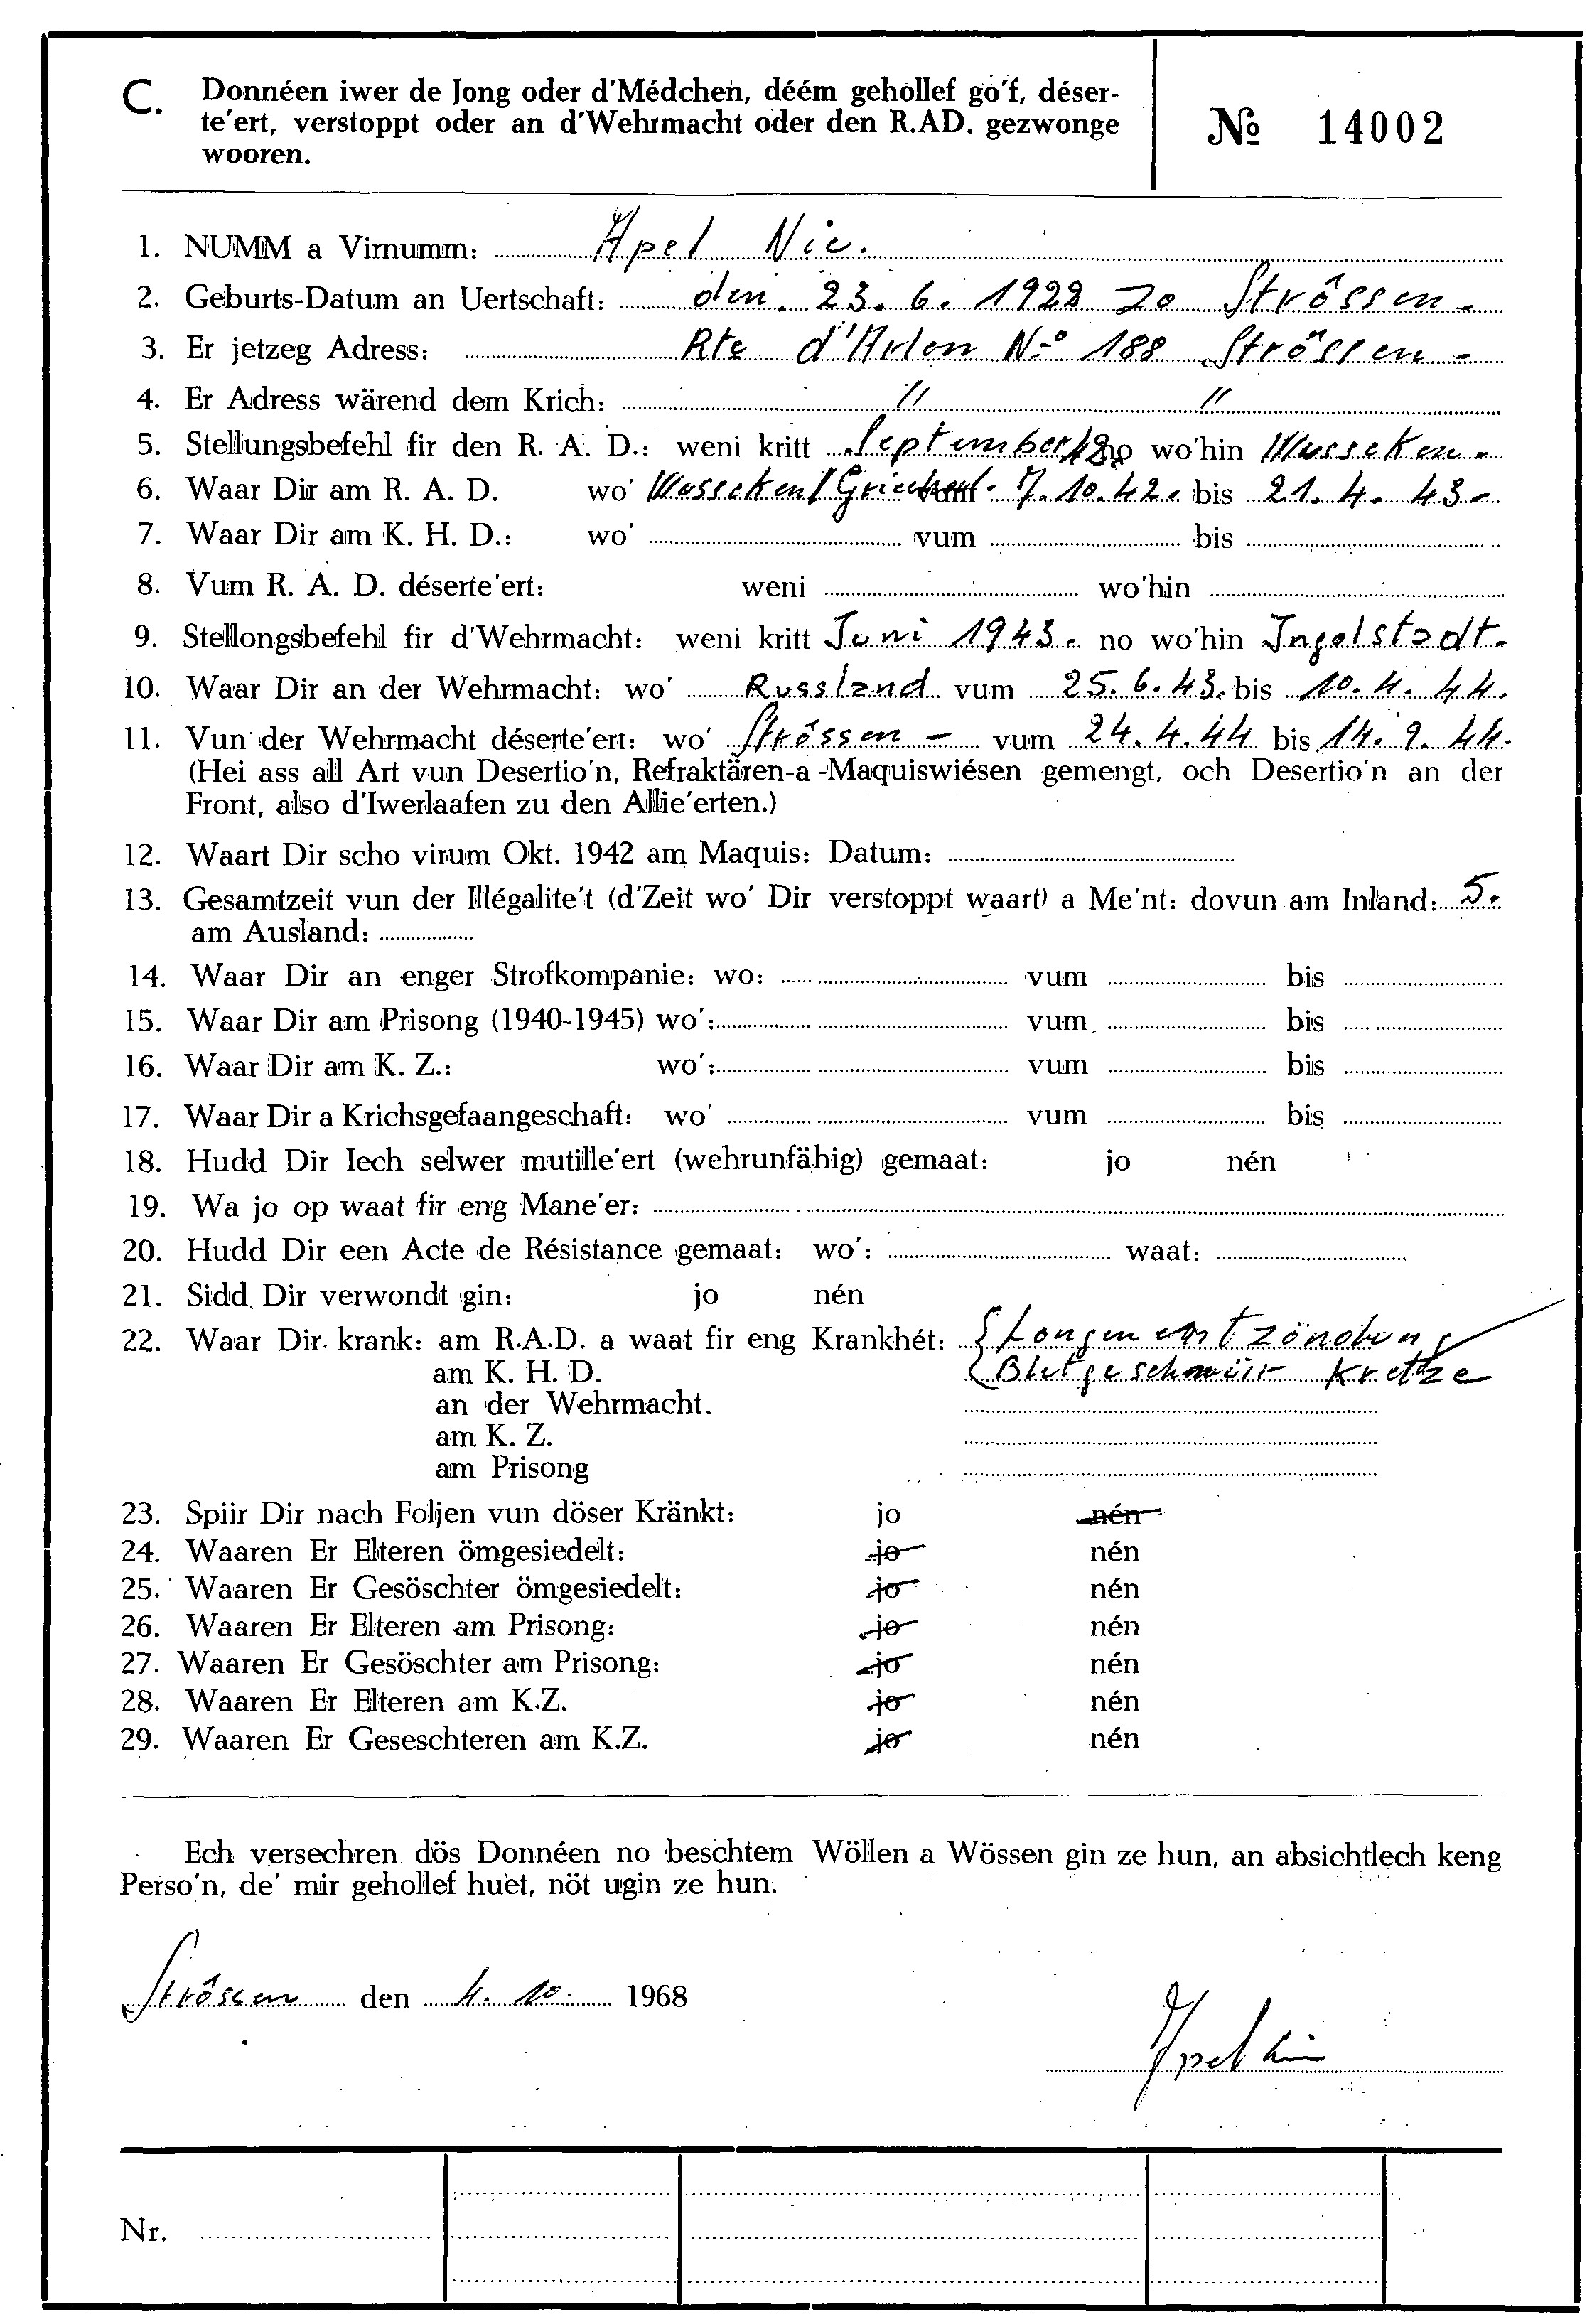 C. Donnéen iwer de Jong oder d'Médchen, déém gehollef go'f, déser-
te'ert, verstoppt oder an d'Wehrmacht oder den R.AD. gezwonge
wooren.
№ 14002
1. NUMM a Virnumm: Apel Nic.
2. Geburts-Datum an Uertschaft: den. 23. 6. 1922 zo Strôssen -
3. Er jetzeg Adress: Rte d'Arlon N.º 188 Strôssen -
4. Er Adress wärend dem Krich: " "
5. Stellungsbefehl fir den R. A. D.: weni kritt September 42 no wo'hin Musseken -
6. Waar Dir am R. A. D. wo' Musseken / vum 7. 10. 42. bis 21. 4. 43 -
7. Waar Dir am K. H. D.: wo' vum bis
8. Vum R. A. D. déserte'ert: weni wo'hin
9. Stellongsbefehl fir d'Wehrmacht: weni kritt Juni 1943 - no wo'hin Ingolstadt -
10. Waar Dir an der Wehrmacht: wo' Russland vum 25. 6. 43. bis 10. 4. 44.
11. Vun der Wehrmacht déserte'ert: wo' Strôssen - vum 24. 4. 44 bis 14. 9. 44.
(Hei ass all Art vun Desertio'n, Refraktären-a -Maquiswiésen gemengt, och Desertio'n an der
Front, also d'Iwerlaafen zu den Allie'erten.)
12. Waart Dir scho virum Okt. 1942 am Maquis: Datum:
13. Gesamtzeit vun der Illégalite't (d'Zeit wo' Dir verstoppt waart) a Me'nt: dovun am Inland: 5.
am Ausland:
14. Waar Dir an enger Strofkompanie: wo: vum bis
15. Waar Dir am Prisong (1940-1945) wo': vum bis
16. Waar Dir am K. Z.: wo': vum bis
17. Waar Dir a Krichsgefaangeschaft: wo' vum bis
18. Hudd Dir Iech selwer mutille'ert (wehrunfähig) gemaat: jo nén
19. Wa jo op waat fir eng Mane'er:
20. Hudd Dir een Acte de Résistance gemaat: wo': waat:
21. Sidd Dir verwondt gin: jo nén
22. Waar Dir krank: am R.A.D. a waat fir eng Krankhét: { Longenentzöndung
am K. H. D. { Blutgeschwür Kretze
an der Wehrmacht.
am K. Z.
am Prisong
23. Spiir Dir nach Foljen vun döser Kränkt: jo nén
24. Waaren Er Elteren ömgesiedelt: jo nén
25. Waaren Er Gesöschter ömgesiedelt: jo nén
26. Waaren Er Elteren am Prisong: jo nén
27. Waaren Er Gesöschter am Prisong: jo nén
28. Waaren Er Elteren am K.Z. jo nén
29. Waaren Er Geseschteren am K.Z. jo nén
Ech versechren dös Donnéen no beschtem Wöllen a Wössen gin ze hun, an absichtlech keng
Perso'n, de' mir gehollef huet, nöt ugin ze hun.
Strôssen den 4. 10. 1968
Apel
Nr.